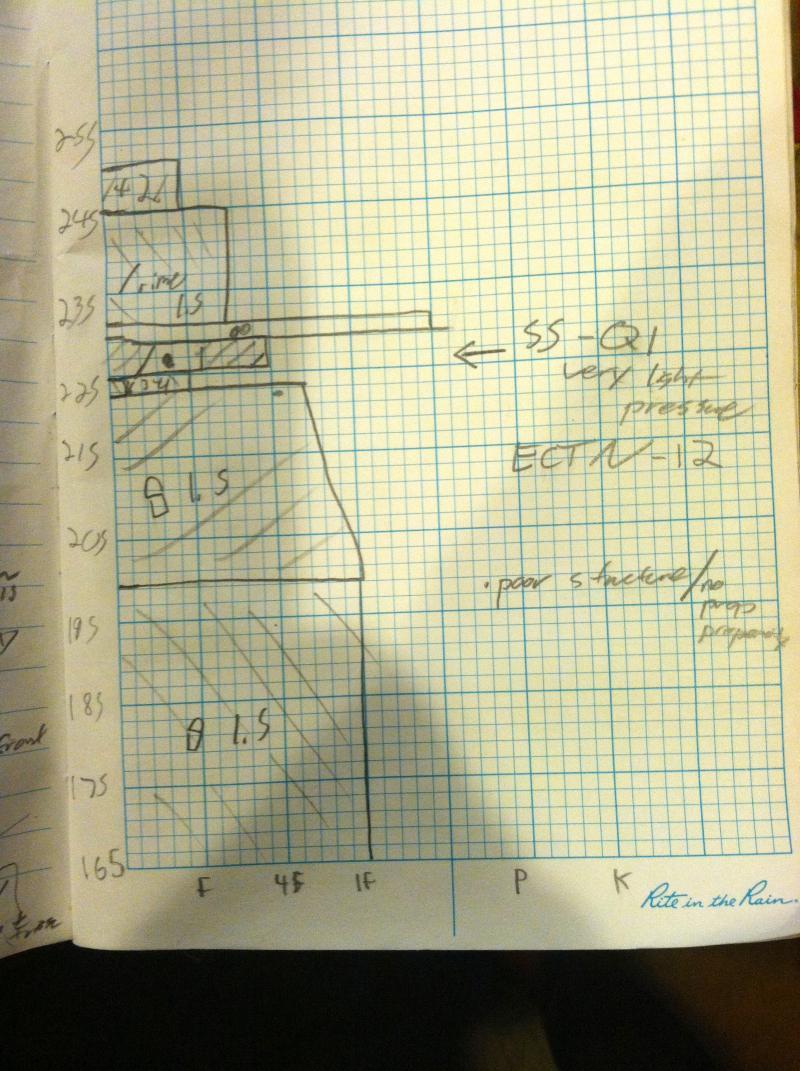 255
245
/ rime
1.5
235
SS-Q1
very light
pressure
225
215
ECTN-12
1.5
205
. poor structure/no
prop
propensity
195
185
1.5
175
165
F 4F 1F P K
Rite in the Rain.